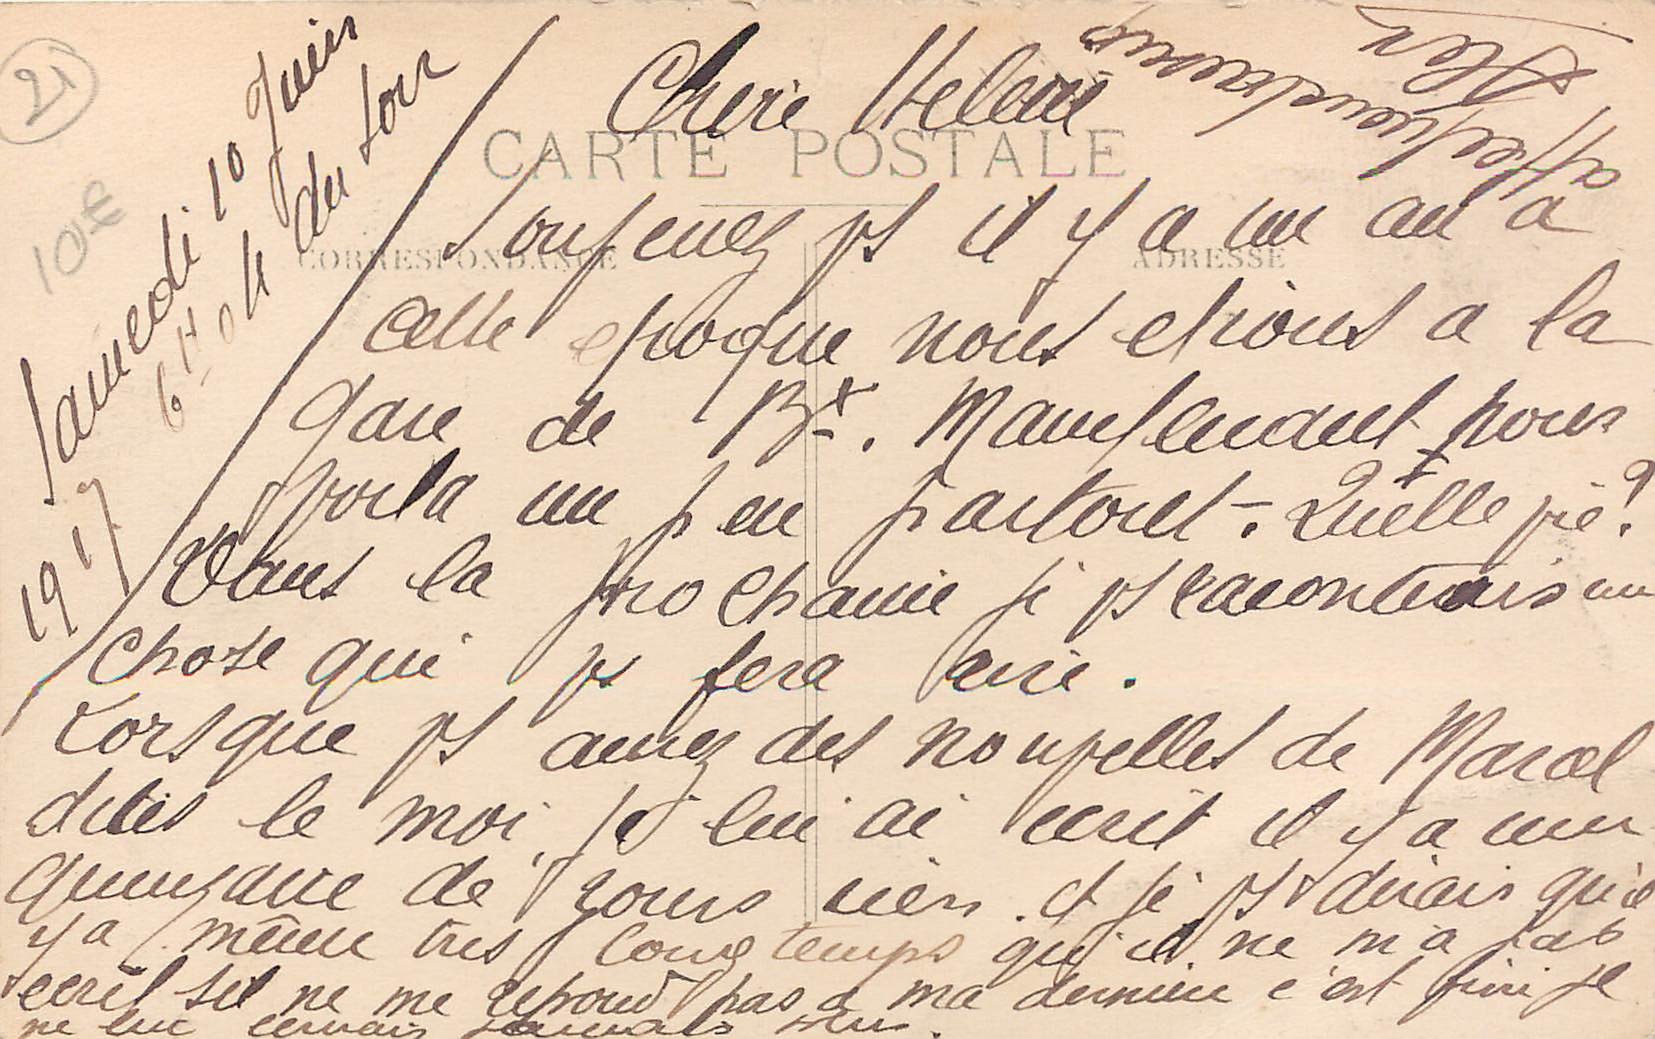 21
10€
Samedi 10 Juin
6H du soir
1917
Cherie Helene
CARTE POSTALE
CORRESPONDANCE
ADRESSE
Souvenez vs il y a un an a
cette epoque nous etions a la
Gare de Bx. Maintenant nous
voila un peu partout. Quelle vie?
Dans la prochaine je vs raconterais un
chose qui vs fera rire.
Lorsque vs aurez des nouvelles de Marcel
dites le moi, je lui ai ecrit il y a une
quinzaine de jours rien. et je vs dirais qu'il
y a même tres longtemps qu'il ne m'a pas
ecrit s'il ne me repond pas a ma derniere c'est fini je
ne lui jamais
affectueusement